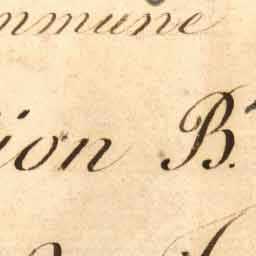 mmune
ion B.